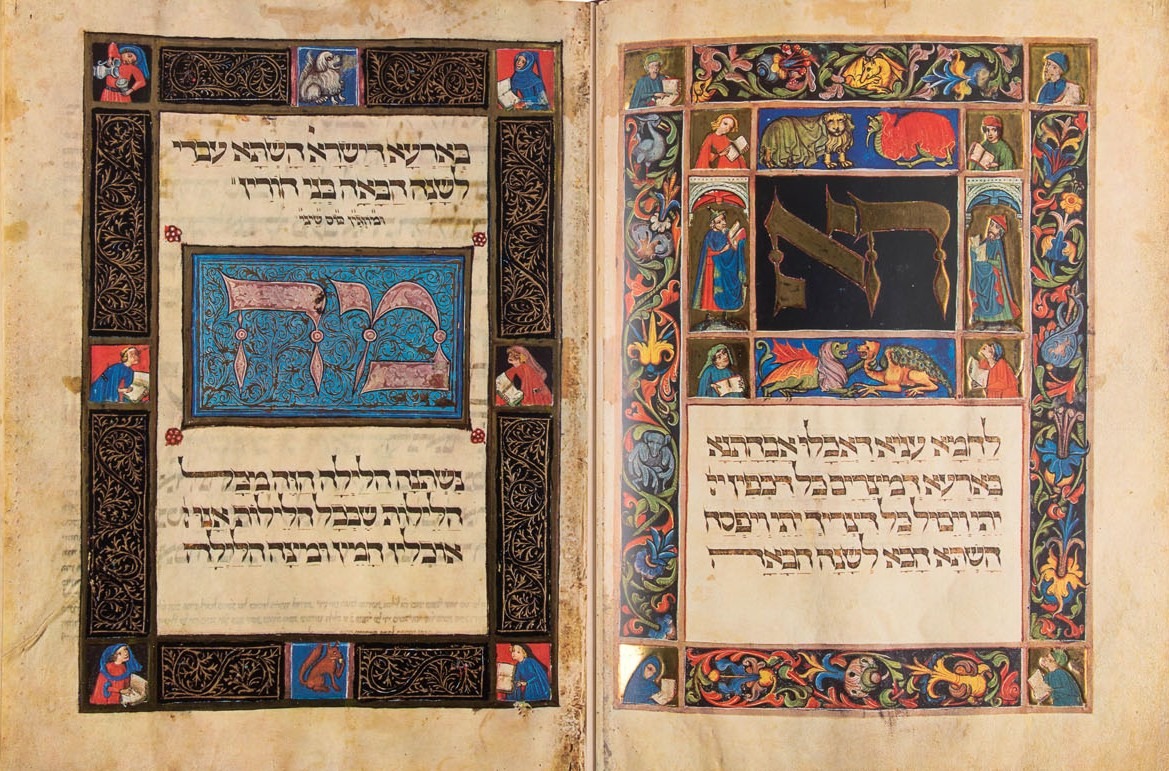 הא
לחמא עניא דאכלו אבהתנא
בארעא דמצרים כל דכפין
יתי וייכול כל דצריך יתי ויפסח
השתא הכא לשנה הבאה
בארעא דישרא' השתא עבדי
לשנה הבאה בני חורין
ומוזגין כוס שיני
מה
נשתנה הלילה הזה מכל
הלילות שבכל הלילות אנו
אוכלין חמץ ומצה הלילה